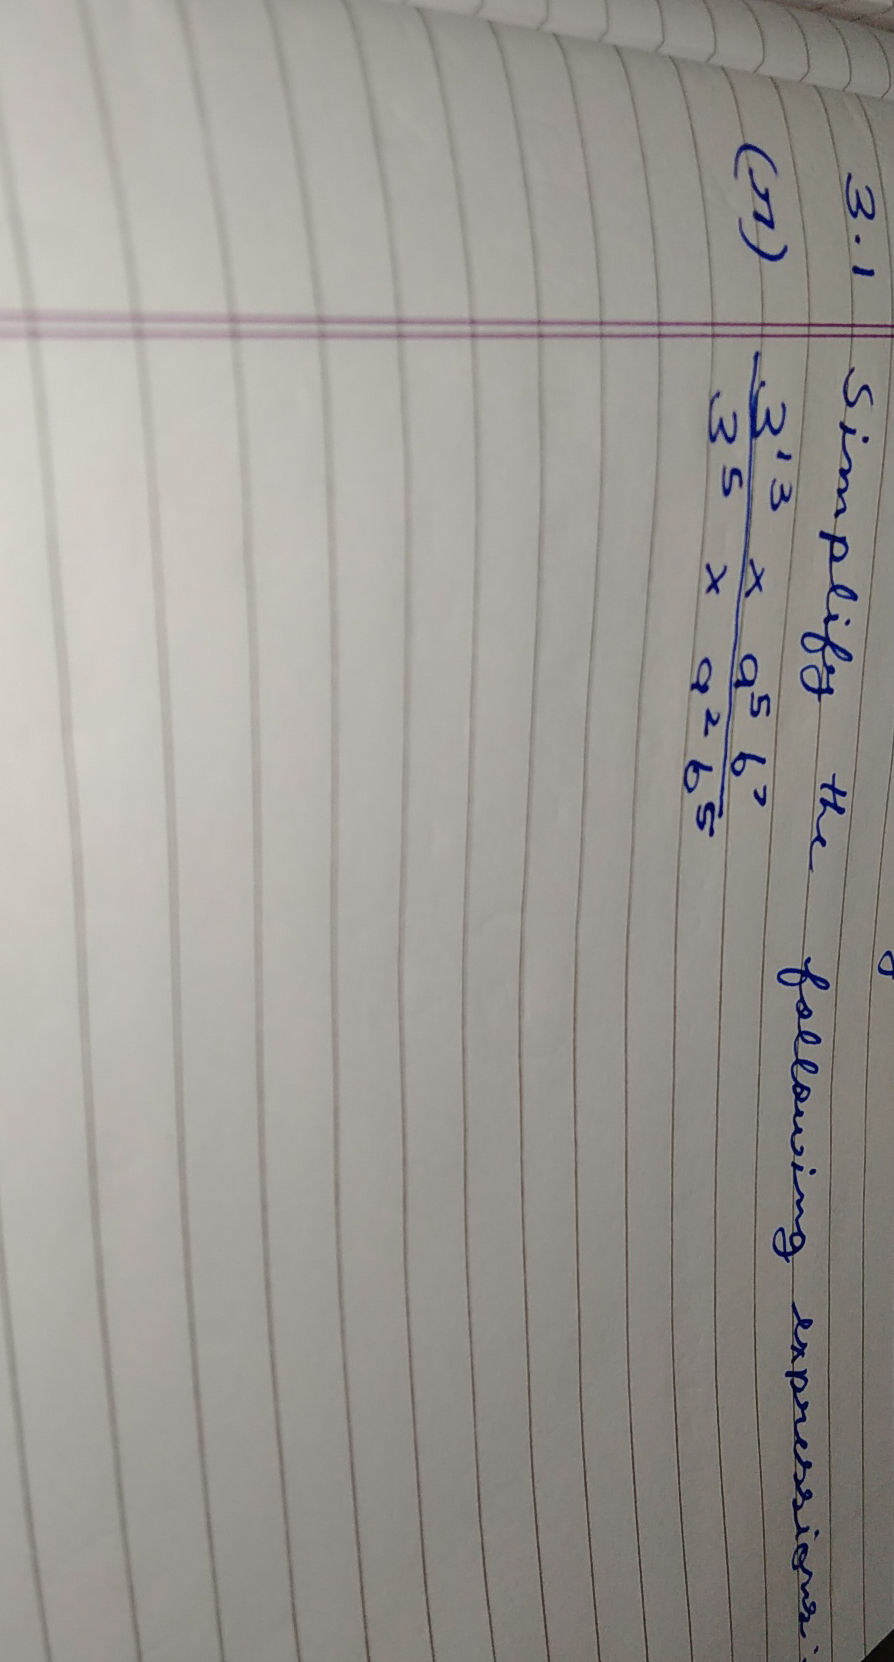 3.1 Simplify the following expressions:
(n) 3¹³ × a⁵ b⁷
3⁵ × a² b⁵